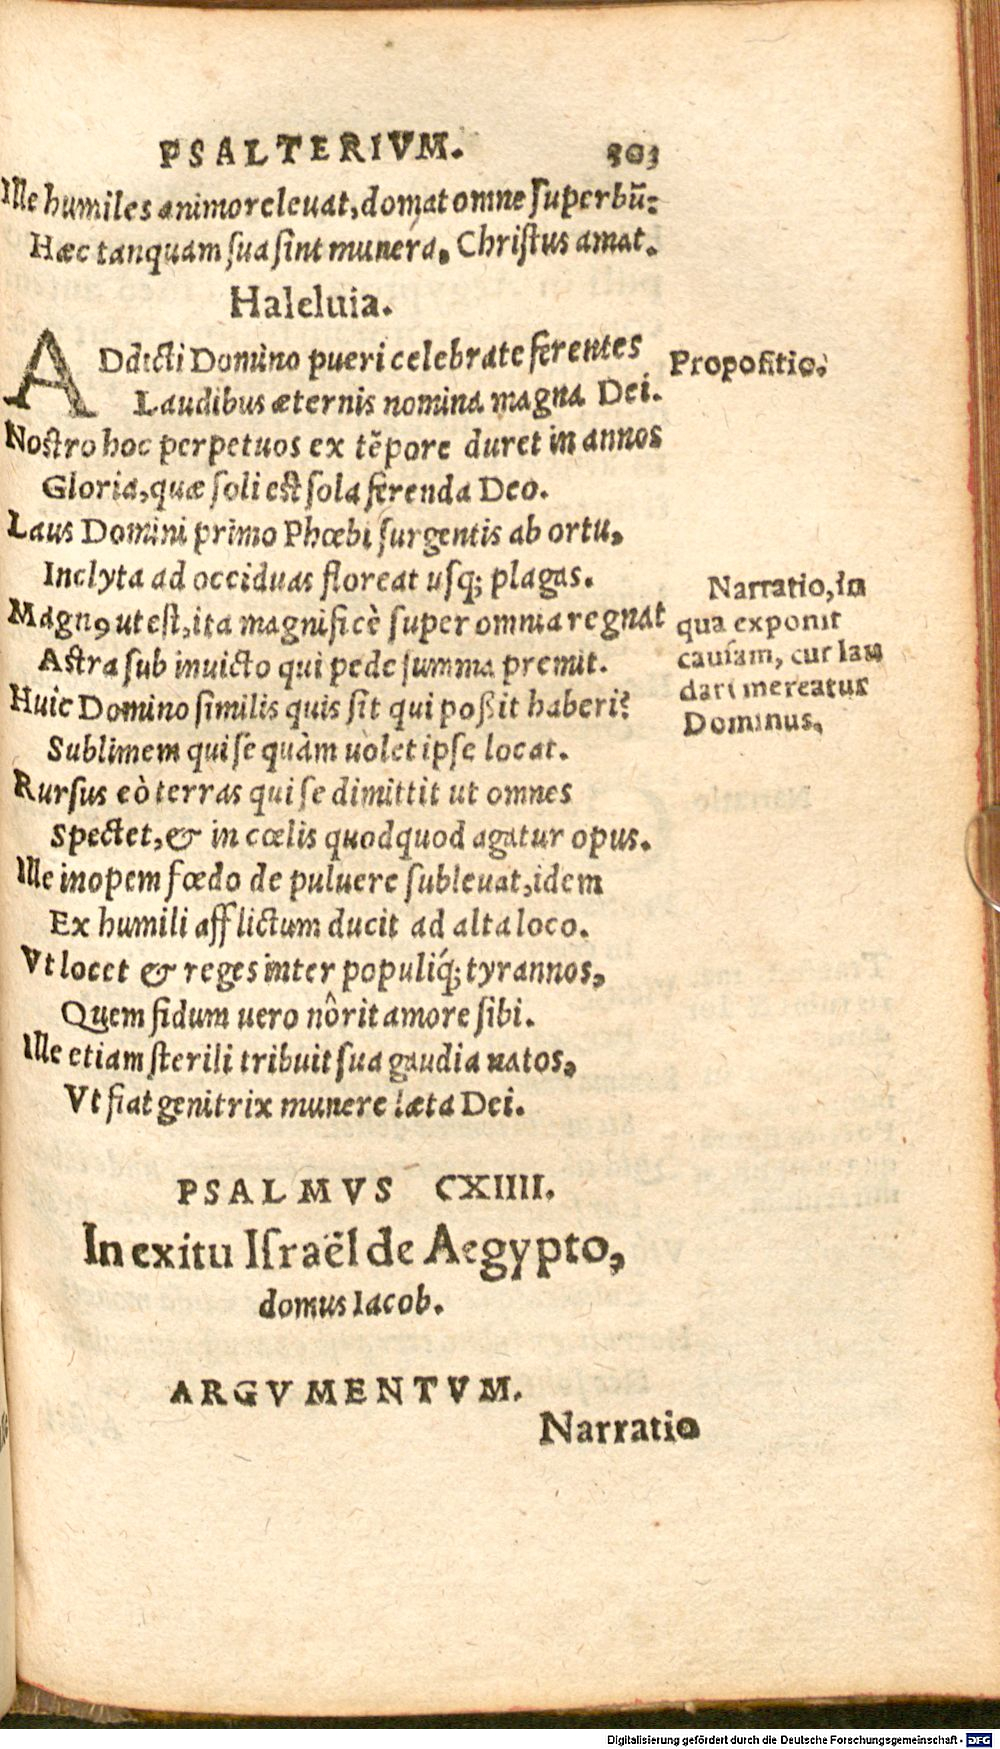 PSALTERIVM. 303
Ille humiles animo releuat, domat omne superbū:
Hæc tanquam sua sint munera, Christus amat.
Haleluia.
ADdicti Domino pueri celebrate ferentes
Laudibus æternis nomina magna Dei.
Propositio.
Nostro hoc perpetuos ex tēpore duret in annos
Gloria, quæ soli est sola ferenda Deo.
Laus Domini primo Phœbi surgentis ab ortu,
Inclyta ad occiduas floreat usq; plagas.
Magnꝰ ut est, ita magnificè super omnia regnat
Astra sub inuicto qui pede summa premit.
Huic Domino similis quis sit qui poßit haberi?
Sublimem qui se quàm uolet ipse locat.
Narratio, in
qua exponit
causam, cur lau
dari mereatur
Dominus,
Rursus eò terras qui se dimittit ut omnes
Spectet, & in cœlis quodquod agatur opus.
Ille inopem fœdo de puluere subleuat, idem
Ex humili afflictum ducit ad alta loco.
Vt locet & reges inter populiq́; tyrannos,
Quem fidum uero nôrit amore sibi.
Ille etiam sterili tribuit sua gaudia natos,
Vt fiat genitrix munere læta Dei.
PSALMVS CXIIII.
In exitu Israël de Aegypto,
domus Iacob.
ARGVMENTVM.
Narratio
Digitalisierung gefördert durch die Deutsche Forschungsgemeinschaft - DFG